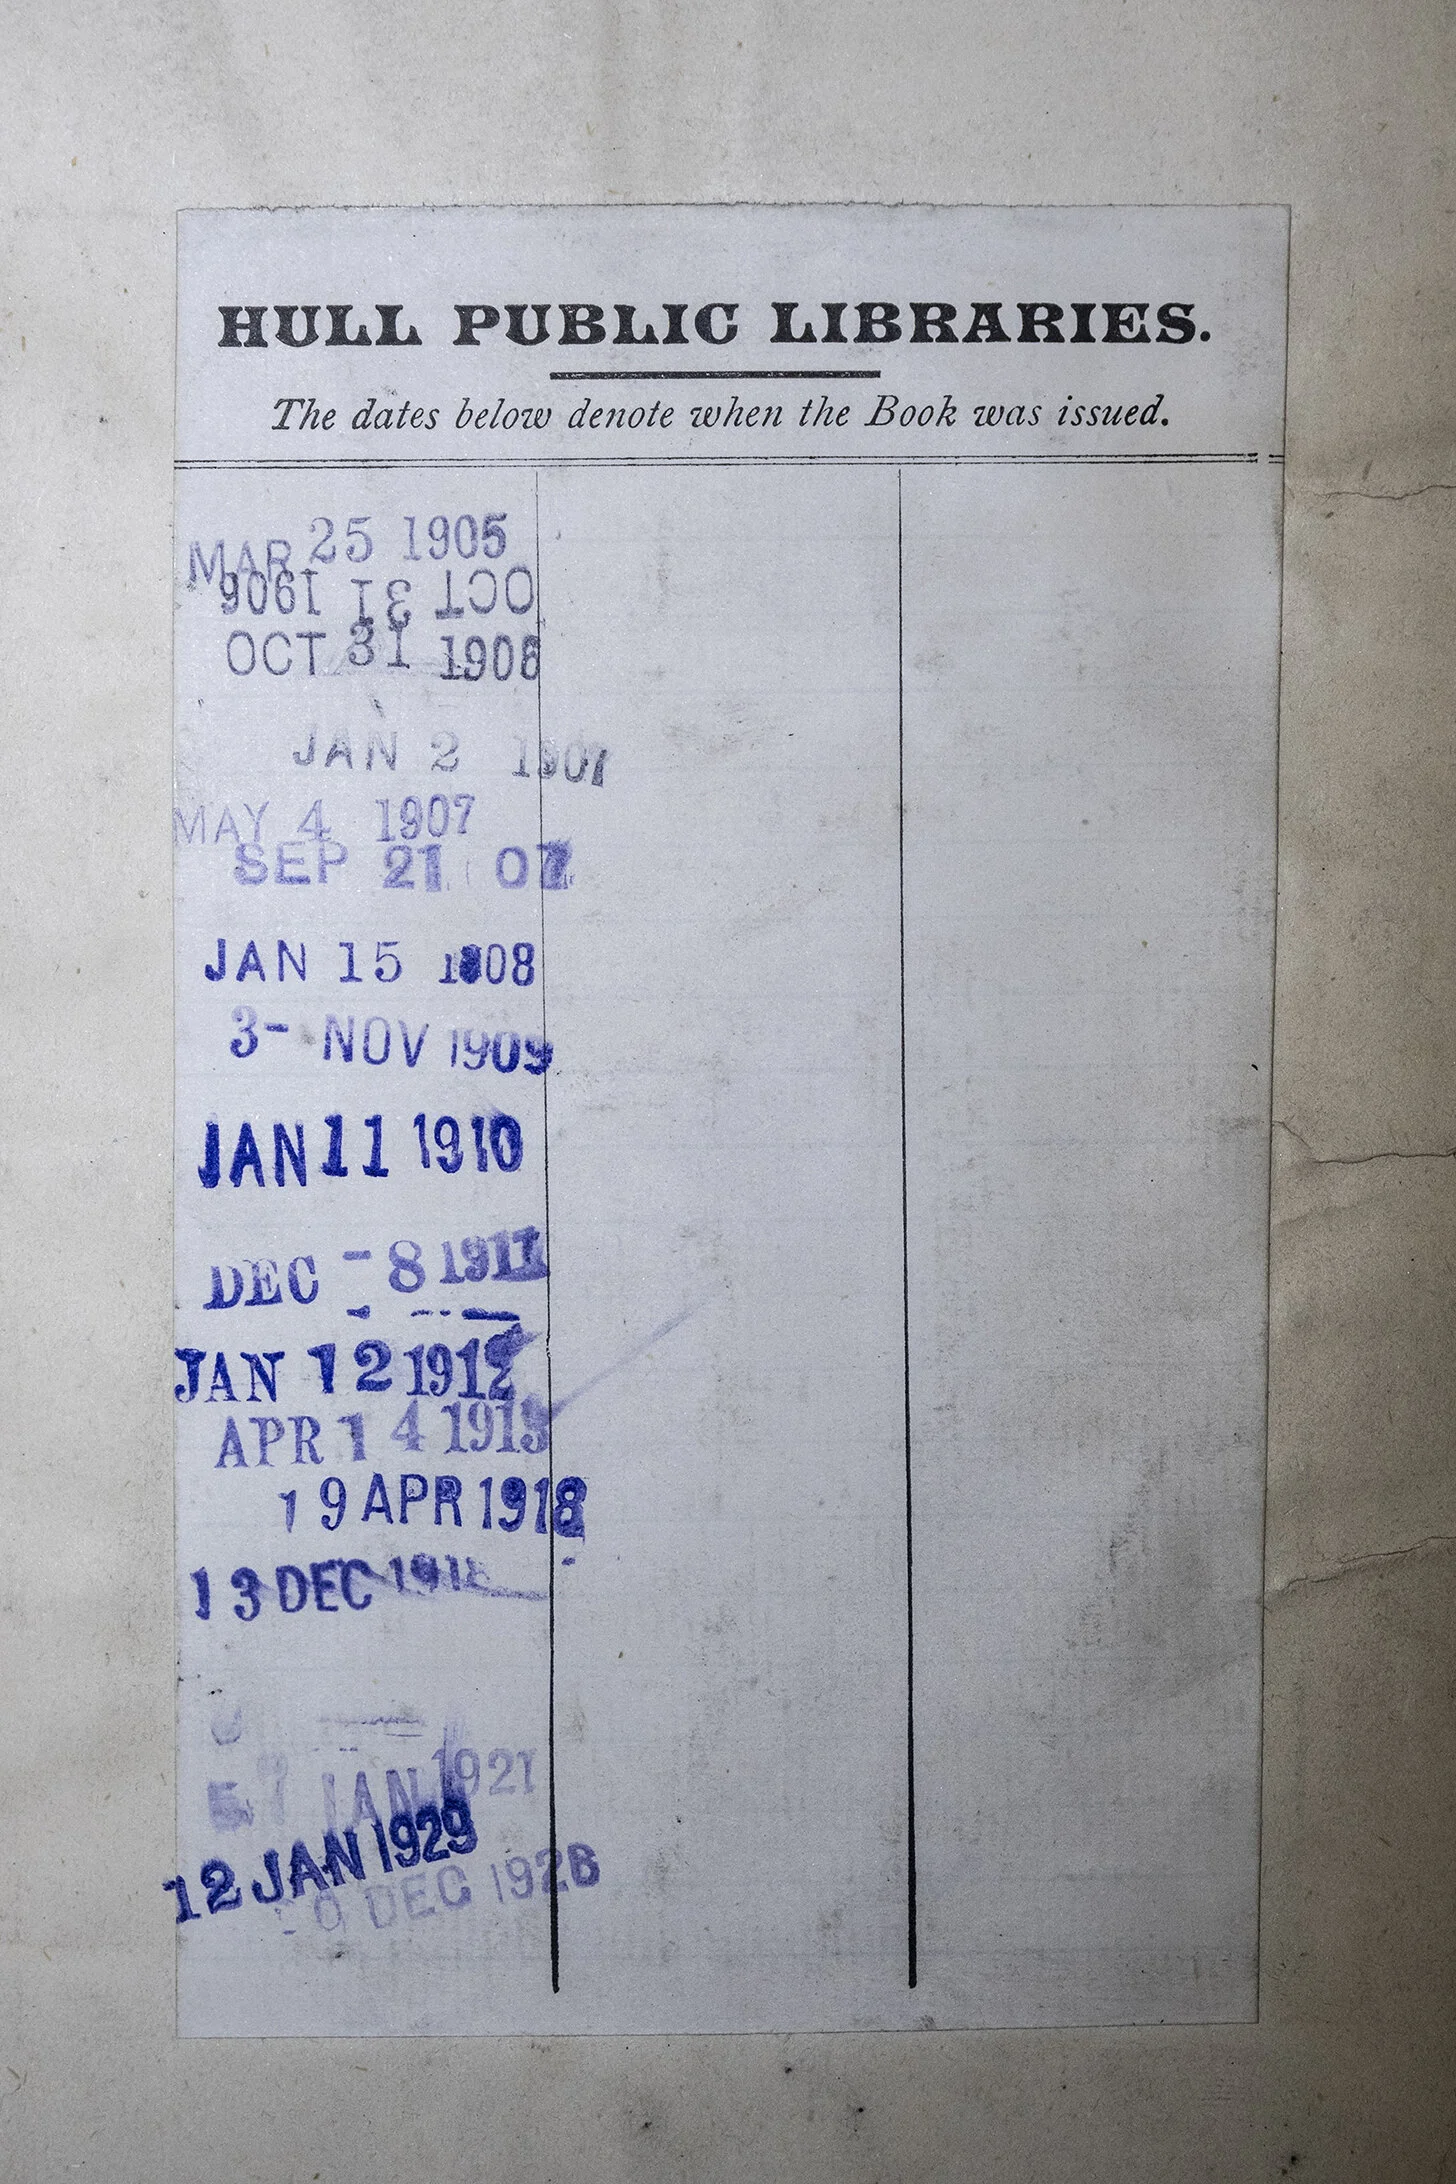 HULL PUBLIC LIBRARIES.
The dates below denote when the Book was issued.
MAR 25 1905
OCT 31 1906
OCT 31 1906
JAN 2 1907
MAY 4 1907
SEP 21 07
JAN 15 1908
3- NOV 1909
JAN 11 1910
DEC -8 1911
JAN 12 1912
APR 14 1913
19 APR 1918
13 DEC
JAN 1921
12 JAN 1929
DEC 1928